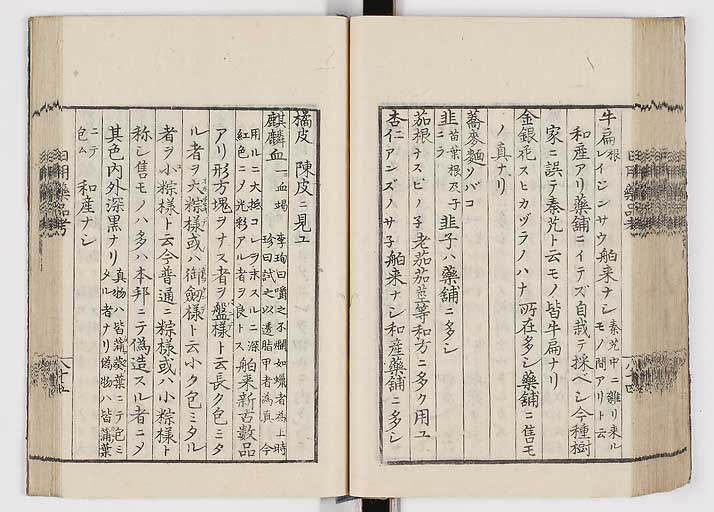 牛扁 根 レイジンサウ 舶来ナシ 秦艽中ニ雜リ来ル モノ間アリト云
和産アリ藥舖ニイデズ自栽テ採ベシ今種樹
家ニ誤テ秦艽ト云モノ皆牛扁ナリ
金銀花スヒカヅラノハナ 所在多シ藥舖ニ售モ
ノ真ナリ
蕎麥麵ソバコ
韭 苗葉根及子 ニラ 韭子ハ藥舖ニ多シ
茄根ナスビノ子 老茄茄莖等和方ニ多ク用ユ
杏仁アンズノサ子 舶来ナシ和産藥舖ニ多シ
橘皮 陳皮ニ見ユ
麒麟血 一血竭 李珣曰嚼之不爛如蠟者為上時 珍曰試之以透指甲者為真 今
用ルニ大抵コレヲ末スルニ深 紅色ニノ光彩アル者ヲ良トス 舶来新古數品
アリ形方塊ヲナス者ヲ盤様ト云長ク包ミタ
ル者ヲ大粽様或ハ御劔様ト云小ク包ミタル
者ヲ小粽様ト云今普通ニ粽様或ハ小粽様ト
称シ售モノハ多ハ本邦ニテ偽造スル者ニノ
其色内外深黒ナリ 真物ハ皆蒲葵葉ニテ包ミ タル者ナリ偽物ハ皆蒲葉
ニテ 包ム 和産ナシ
日用藥品考
日用藥品考